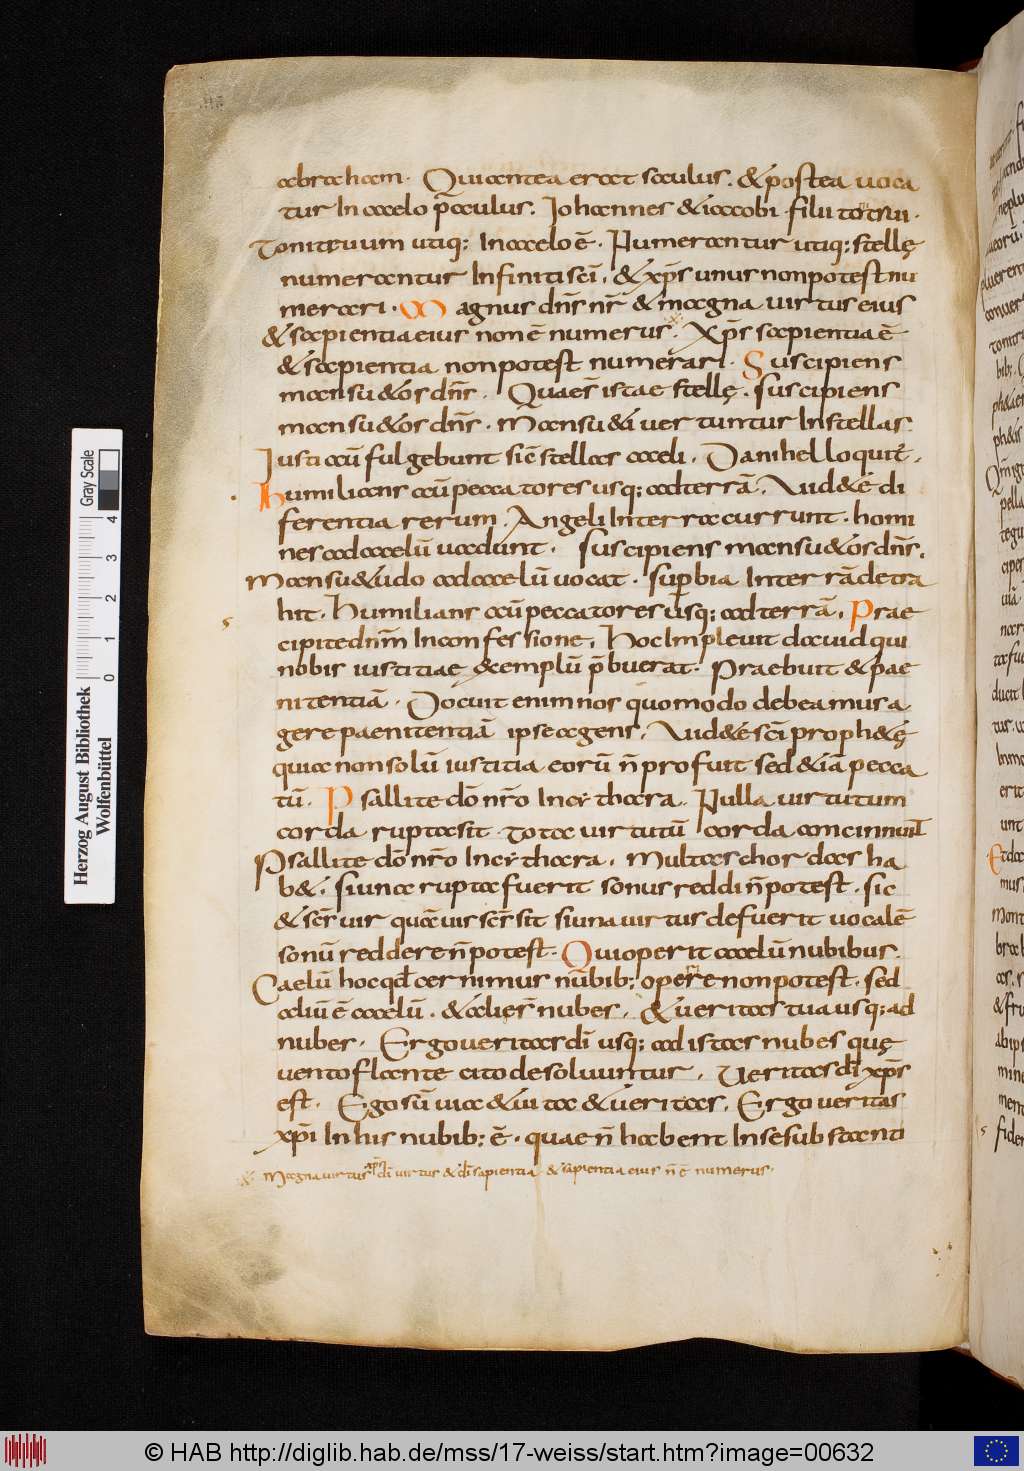 abraham. Qui antea erat saculus. & postea uoca
tur In caelo p̄aculus. Iohannes & iacobi filii
Tonitruum utiq; In caelo ē. Numerantur utiq; stellę
numerantur Infiniti sc̄i. & xp̄s unus non potest nu
merari. Magnus dn̄s nr̄ & magna uirtus eius
& sapientia eius non ē numerus. Xp̄s sapientia ē
& sapientia non potest numerari. Suscipiens
mansu&os dn̄s. Quaes̄ istae stellę. suscipiens
mansu&os dn̄s. Mansu&i uertuntur In stellas
Iusti aūt fulgebunt sic̄ stellas caeli. Danihel loquit̄.
humilians aūt peccatores usq; ad terrā. Uid&e di
ferentia rerum. Angeli In terra currunt. homi
nes ad caelū uadunt. suscipiens mansu&os dn̄s.
Mansu&udo ad caelū uocat. sup̄bia In terrā detra
hit. humilians aūt peccatores usq; ad terrā. Prae
cipite dn̄m In confessione. Hoc Impleuit dauid qui
nobis iustitiae exemplū p̄buerat. Praebuit & pae
nitentiā. Docuit enim nos quomodo debeamus a
gere paenitentiā ipse agens. Uid&e sc̄i proph&ę
quia non solū iustitia eorū n̄ profuit sed & iā pecca
tū. Psallite dō nr̄o In cythara. Nulla uirtutum
corda rupta sit. Tota uirtutū corda concinnuit
Psallite dō nr̄o In cythara. multas chordas ha
b&. si una rupta fuerit sonus reddi n̄ potest. sic
& sc̄s uir quāuis sc̄s sit si una uirtus defuerit uocalē
sonū reddere n̄ potest. Qui operit caelū nubibus.
Caelū hoc qd̄ cernimus nubib; operire non potest. sed
aliū ē caelū. & alies̄ nubes. & ueritas tua usq; ad
nubes. Ergo ueritas dī usq; ad istas nubes quę
uento flante cito desoluuntur. Ueritas dī xp̄s
est. Ego sū uia & uita & ueritas. Ergo ueritas
xp̄i In his nubib; ē. quae n̄ habent In se substanti
Magna uirtus dī uirtus & dī sapientia & sapientia eius n̄ ē numerus.
Gray Scale
0 1 2 3 4
Herzog August Bibliothek
Wolfenbüttel
© HAB http://diglib.hab.de/mss/17-weiss/start.htm?image=00632